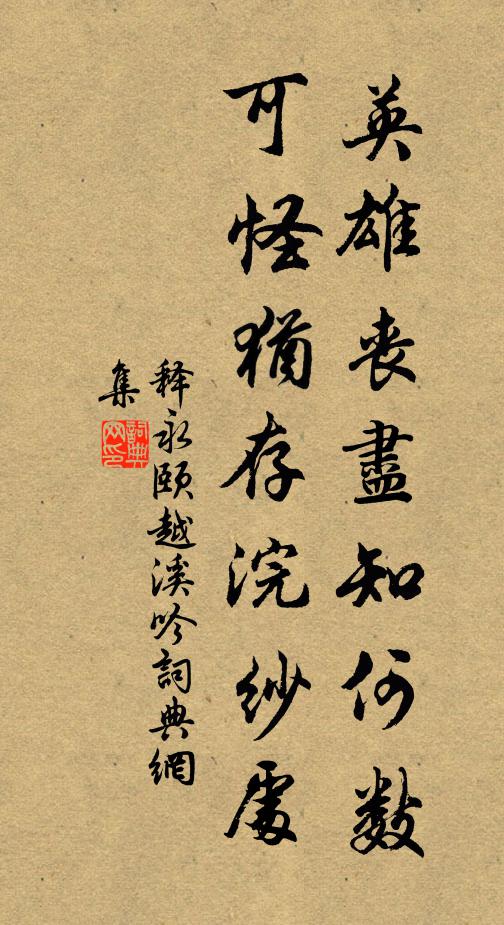 英雄丧盡知何數
可怪猶存浣紗處
释永颐越溪吟詞典網
集
詞典网印